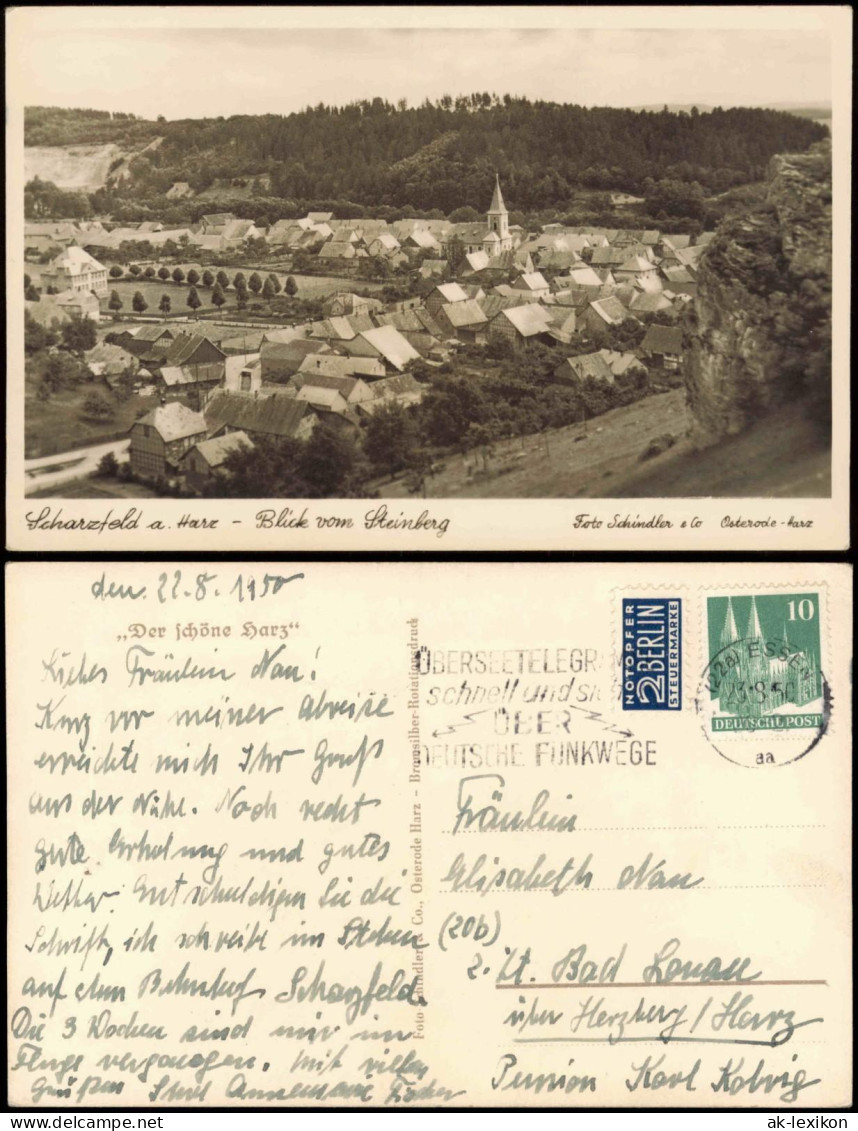 Scharzfeld a. Harz – Blick vom Steinberg
Foto Schindler & Co Osterode-Harz
den. 22.8.1950
„Der schöne Harz“
Liebes Fräulein Nau!
Kurz vor meiner Abreise
erreichte mich Ihr Gruß
aus der Nähe. Noch recht
gute Erholung und gutes
Wetter. Entschuldigen Sie die
Schrift, ich schreibe im Stehen
auf dem Bahnhof Scharzfeld.
Die 3 Wochen sind mir im
Fluge vergangen. Mit vielen
Grüßen Ihre Annemarie
Foto-Schindler & Co., Osterode Harz – Bromsilber-Rotationsdruck
ÜBERSEETELEGRAMME
schnell und
ÜBER
DEUTSCHE FUNKWEGE
NOTOPFER
2 BERLIN
STEUERMARKE
10
DEUTSCHE POST
(22a) ESSEN
23.8.50
aa
Fräulein
Elisabeth Nau
(20b)
z. Zt. Bad Lonau
über Herzberg/Harz
Pension Karl Kolvig
ak-lexikon